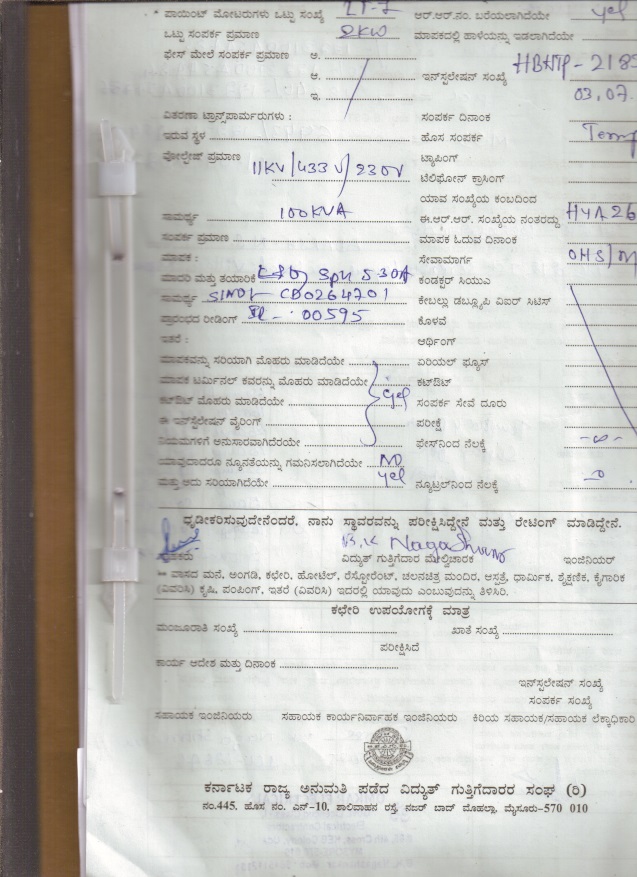 * ಪಾಯಿಂಟ್ ಮೋಟರುಗಳು ಒಟ್ಟು ಸಂಖ್ಯೆ LT-7 ಆರ್.ಆರ್.ನಂ. ಬರೆಯಲಾಗಿದೆಯೇ yes
ಒಟ್ಟು ಸಂಪರ್ಕ ಪ್ರಮಾಣ 2KW ಮಾಪಕದಲ್ಲಿ ಹಾಳೆಯನ್ನು ಇಡಲಾಗಿದೆಯೇ
ಫೇಸ್ ಮೇಲೆ ಸಂಪರ್ಕ ಪ್ರಮಾಣ ಅ.
ಆ. ಇನ್‌ಸ್ಟಲೇಷನ್ ಸಂಖ್ಯೆ HBHTP-2185
ಇ. 03.07.
ವಿತರಣಾ ಟ್ರಾನ್ಸ್‌ಪಾರ್ಮರುಗಳು : ಸಂಪರ್ಕ ದಿನಾಂಕ
ಇರುವ ಸ್ಥಳ ಹೊಸ ಸಂಪರ್ಕ Temp
ವೋಲ್ಟೇಜ್ ಪ್ರಮಾಣ 11KV/433V/230V ಟ್ಯಾಪಿಂಗ್
ಟೆಲಿಫೋನ್ ಕ್ರಾಸಿಂಗ್
ಯಾವ ಸಂಖ್ಯೆಯ ಕಂಬದಿಂದ
ಸಾಮರ್ಥ್ಯ 100KVA ಈ.ಆರ್.ಆರ್. ಸಂಖ್ಯೆಯ ನಂತರದ್ದು HYA26
ಸಂಪರ್ಕ ಪ್ರಮಾಣ ಮಾಪಕ ಓದುವ ದಿನಾಂಕ
ಮಾಪಕ : ಸೇವಾಮಾರ್ಗ OHS/M
ಮಾದರಿ ಮತ್ತು ತಯಾರಿಕೆ 530A ಕಂಡಕ್ಟರ್ ಸಿಯುಎ
ಸಾಮರ್ಥ್ಯ CB0264701 ಕೇಬಲ್ಲು ಡಬ್ಲ್ಯೂಪಿ ವಿಐರ್ ಸಿಟಿಸ್
ಪ್ರಾರಂಭದ ರೀಡಿಂಗ್ 00595 ಕೊಳವೆ
ಇತರೆ : ಆರ್ಥಿಂಗ್
ಮಾಪಕವನ್ನು ಸರಿಯಾಗಿ ಮೊಹರು ಮಾಡಿದೆಯೇ ಏರಿಯಲ್ ಫ್ಯೂಸ್
ಮಾಪಕ ಟರ್ಮಿನಲ್ ಕವರನ್ನು ಮೊಹರು ಮಾಡಿದೆಯೇ ಕಟ್‌ಔಟ್
ಕಟ್‌ಔಟ್ ಮೊಹರು ಮಾಡಿದೆಯೇ yes ಸಂಪರ್ಕ ಸೇವೆ ದೂರು
ಈ ಇನ್‌ಸ್ಟಲೇಷನ್ ವೈರಿಂಗ್ ಪರೀಕ್ಷೆ
ನಿಯಮಗಳಿಗೆ ಅನುಸಾರವಾಗಿದೆರಯೇ ಫೇಸ್‌ನಿಂದ ನೆಲಕ್ಕೆ -∞-
ಯಾವುದಾದರೂ ನ್ಯೂನತೆಯನ್ನು ಗಮನಿಸಲಾಗಿದೆಯೇ NO
ಮತ್ತು ಅದು ಸರಿಯಾಗಿದೆಯೇ yes ನ್ಯೂಟ್ರಲ್‌ನಿಂದ ನೆಲಕ್ಕೆ
ಧೃಡೀಕರಿಸುವುದೇನೆಂದರೆ, ನಾನು ಸ್ಥಾವರವನ್ನು ಪರೀಕ್ಷಿಸಿದ್ದೇನೆ ಮತ್ತು ರೇಟಿಂಗ್ ಮಾಡಿದ್ದೇನೆ.
B.K
ವಿದ್ಯುತ್ ಗುತ್ತಿಗೆದಾರ ಮೇಲ್ವಿಚಾರಕ ಇಂಜಿನಿಯರ್
** ವಾಸದ ಮನೆ, ಅಂಗಡಿ, ಕಛೇರಿ, ಹೋಟೆಲ್, ರೆಸ್ಟೋರೆಂಟ್, ಚಲನಚಿತ್ರ ಮಂದಿರ, ಆಸ್ಪತ್ರೆ, ಧಾರ್ಮಿಕ, ಶೈಕ್ಷಣಿಕ, ಕೈಗಾರಿಕ
(ವಿವರಿಸಿ) ಕೃಷಿ, ಪಂಪಿಂಗ್, ಇತರೆ (ವಿವರಿಸಿ) ಇದರಲ್ಲಿ ಯಾವುದು ಎಂಬುವುದನ್ನು ತಿಳಿಸಿರಿ.
ಕಛೇರಿ ಉಪಯೋಗಕ್ಕೆ ಮಾತ್ರ
ಮಂಜೂರಾತಿ ಸಂಖ್ಯೆ ಖಾತೆ ಸಂಖ್ಯೆ
ಪರೀಕ್ಷಿಸಿದೆ
ಕಾರ್ಯ ಆದೇಶ ಮತ್ತು ದಿನಾಂಕ
ಇನ್‌ಸ್ಟಲೇಷನ್ ಸಂಖ್ಯೆ
ಸಂಪರ್ಕ ಸಂಖ್ಯೆ
ಸಹಾಯಕ ಇಂಜಿನಿಯರು ಸಹಾಯಕ ಕಾರ್ಯನಿರ್ವಾಹಕ ಇಂಜಿನಿಯರು ಕಿರಿಯ ಸಹಾಯಕ/ಸಹಾಯಕ ಲೆಕ್ಕಾಧಿಕಾರಿ
ಕರ್ನಾಟಕ ರಾಜ್ಯ ಅನುಮತಿ ಪಡೆದ ವಿದ್ಯುತ್ ಗುತ್ತಿಗೆದಾರರ ಸಂಘ (ರಿ)
ನಂ.445, ಹೊಸ ನಂ. ಎನ್-10, ಶಾಲಿವಾಹನ ರಸ್ತೆ, ನಜರ್ ಬಾದ್ ಮೊಹಲ್ಲಾ, ಮೈಸೂರು-570 010